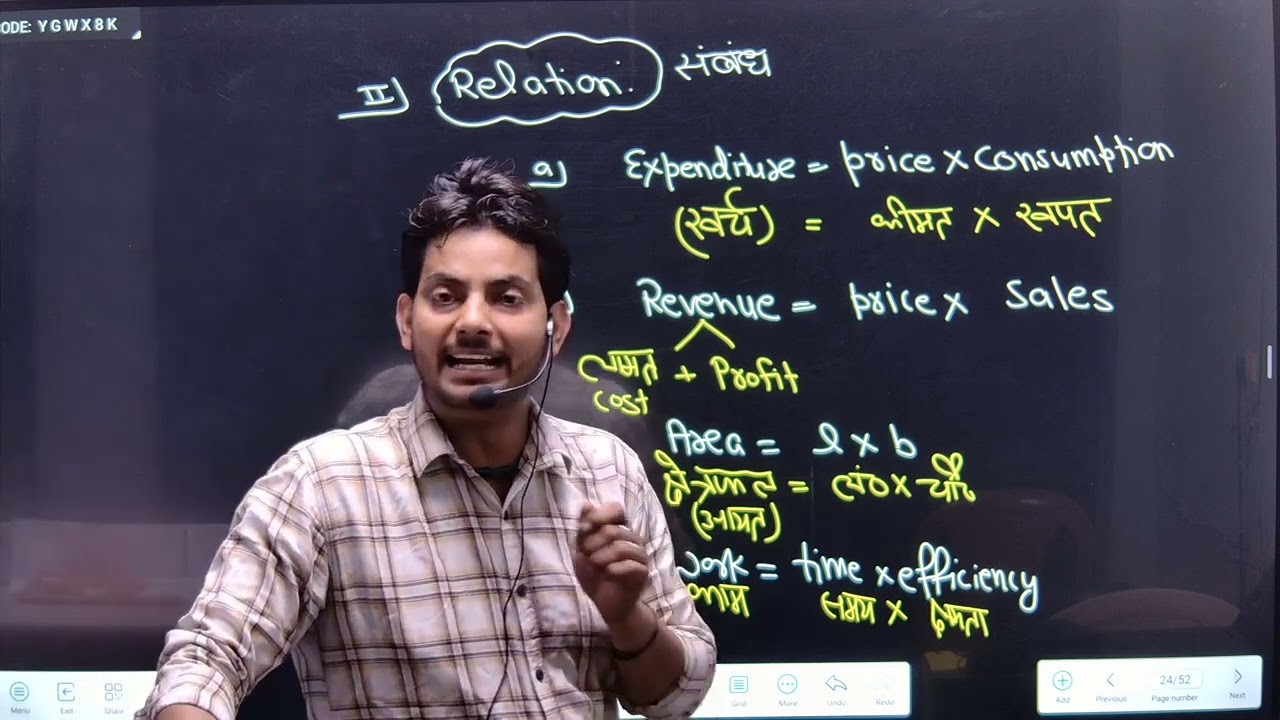 CODE: YGWX8K
II) Relation: संबंध
a) Expenditure = price × Consumption
(खर्च) = कीमत × खपत
) Revenue = price × Sales
लागत + Profit
cost
Area = l × b
क्षेत्रफल = लं० × चौ०
(आयत)
work = time × efficiency
काम समय × क्षमता
Menu Exit Share Grid More Undo Redo Add Previous 24/52 Page number Next